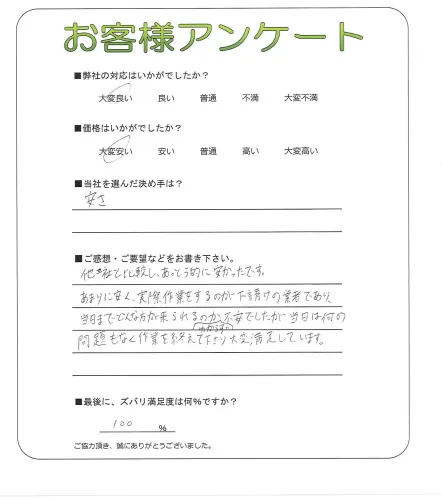 お客様アンケート
■弊社の対応はいかがでしたか?
大変良い 良い 普通 不満 大変不満
■価格はいかがでしたか?
大変安い 安い 普通 高い 大変高い
■当社を選んだ決め手は?
安さ
■ご感想・ご要望などをお書き下さい。
他社と比較し、あっとう的に安かったです。
あまりに安く、実際作業をするのが下請けの業者であり、
当日までどんな方が来られるのか不安でしたが当日は何の
わからず。
問題もなく作業を終えて下さり大変満足しています。
■最後に、ズバリ満足度は何%ですか?
100 %
ご協力頂き、誠にありがとうございました。